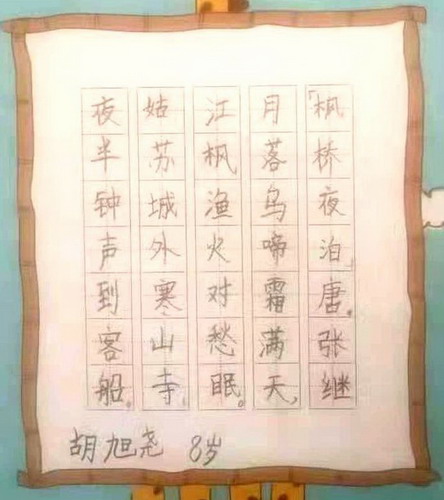 「枫桥夜泊」唐。张继
月落乌啼霜满天，
江枫渔火对愁眠。
姑苏城外寒山寺，
夜半钟声到客船。
胡旭尧 8岁